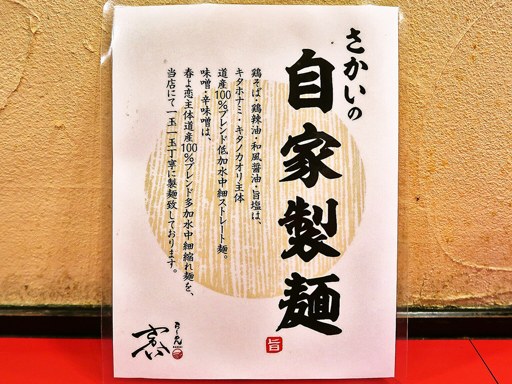 さかいの
自家製麺
鶏そば・鶏辣油・和風醤油・旨塩は、
キタホナミ・キタノカオリ主体
道産100%ブレンド低加水中細ストレート麺。
味噌・辛味噌は、
春よ恋主体道産100%ブレンド多加水中細縮れ麺を、
当店にて一玉一玉丁寧に製麺致しております。
旨
らーめん
さかい